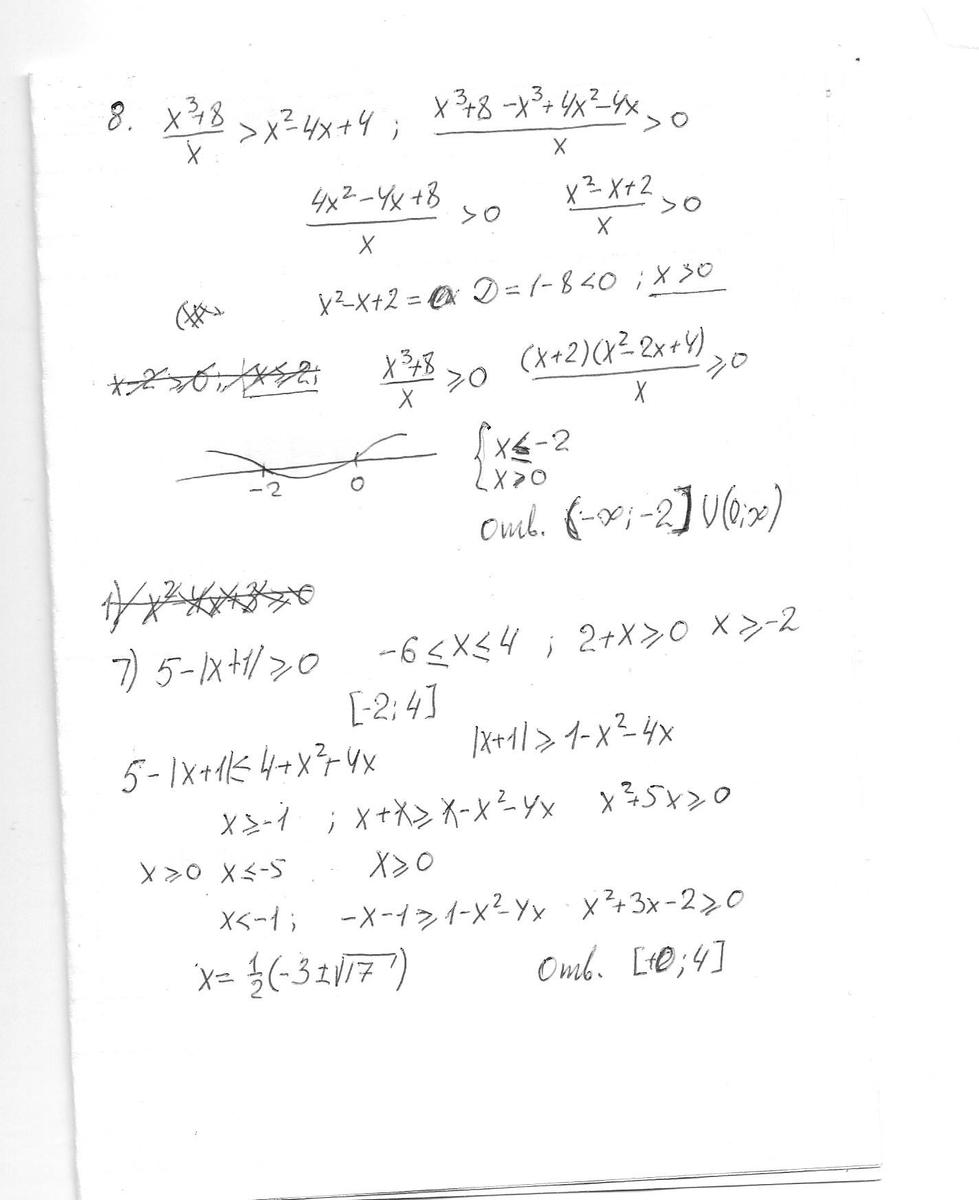 8. (x³+8)/x > x²-4x+4 ; (x³+8-x³+4x²-4x)/x > 0
(4x²-4x+8)/x > 0 (x²-x+2)/x > 0
x²-x+2 = D=1-8<0 ; x>0
x-2≥0; x≥2; (x³+8)/x ≥0 ((x+2)(x²-2x+4))/x ≥0
-2 0 { x≤-2
x>0
Отв. (-∞;-2] U(0;∞)
1) x²-4x+3≥0
7) 5-|x+1|≥0 -6≤x≤4 ; 2+x≥0 x≥-2
[-2;4]
5-|x+1|≤4+x²+4x |x+1|≥1-x²-4x
x≥-1 ; x+1≥1-x²-4x x²+5x≥0
x≥0 x≤-5 x≥0
x<-1; -x-1≥1-x²-4x x²+3x-2≥0
x=½(-3±√17) Отв. [0;4]